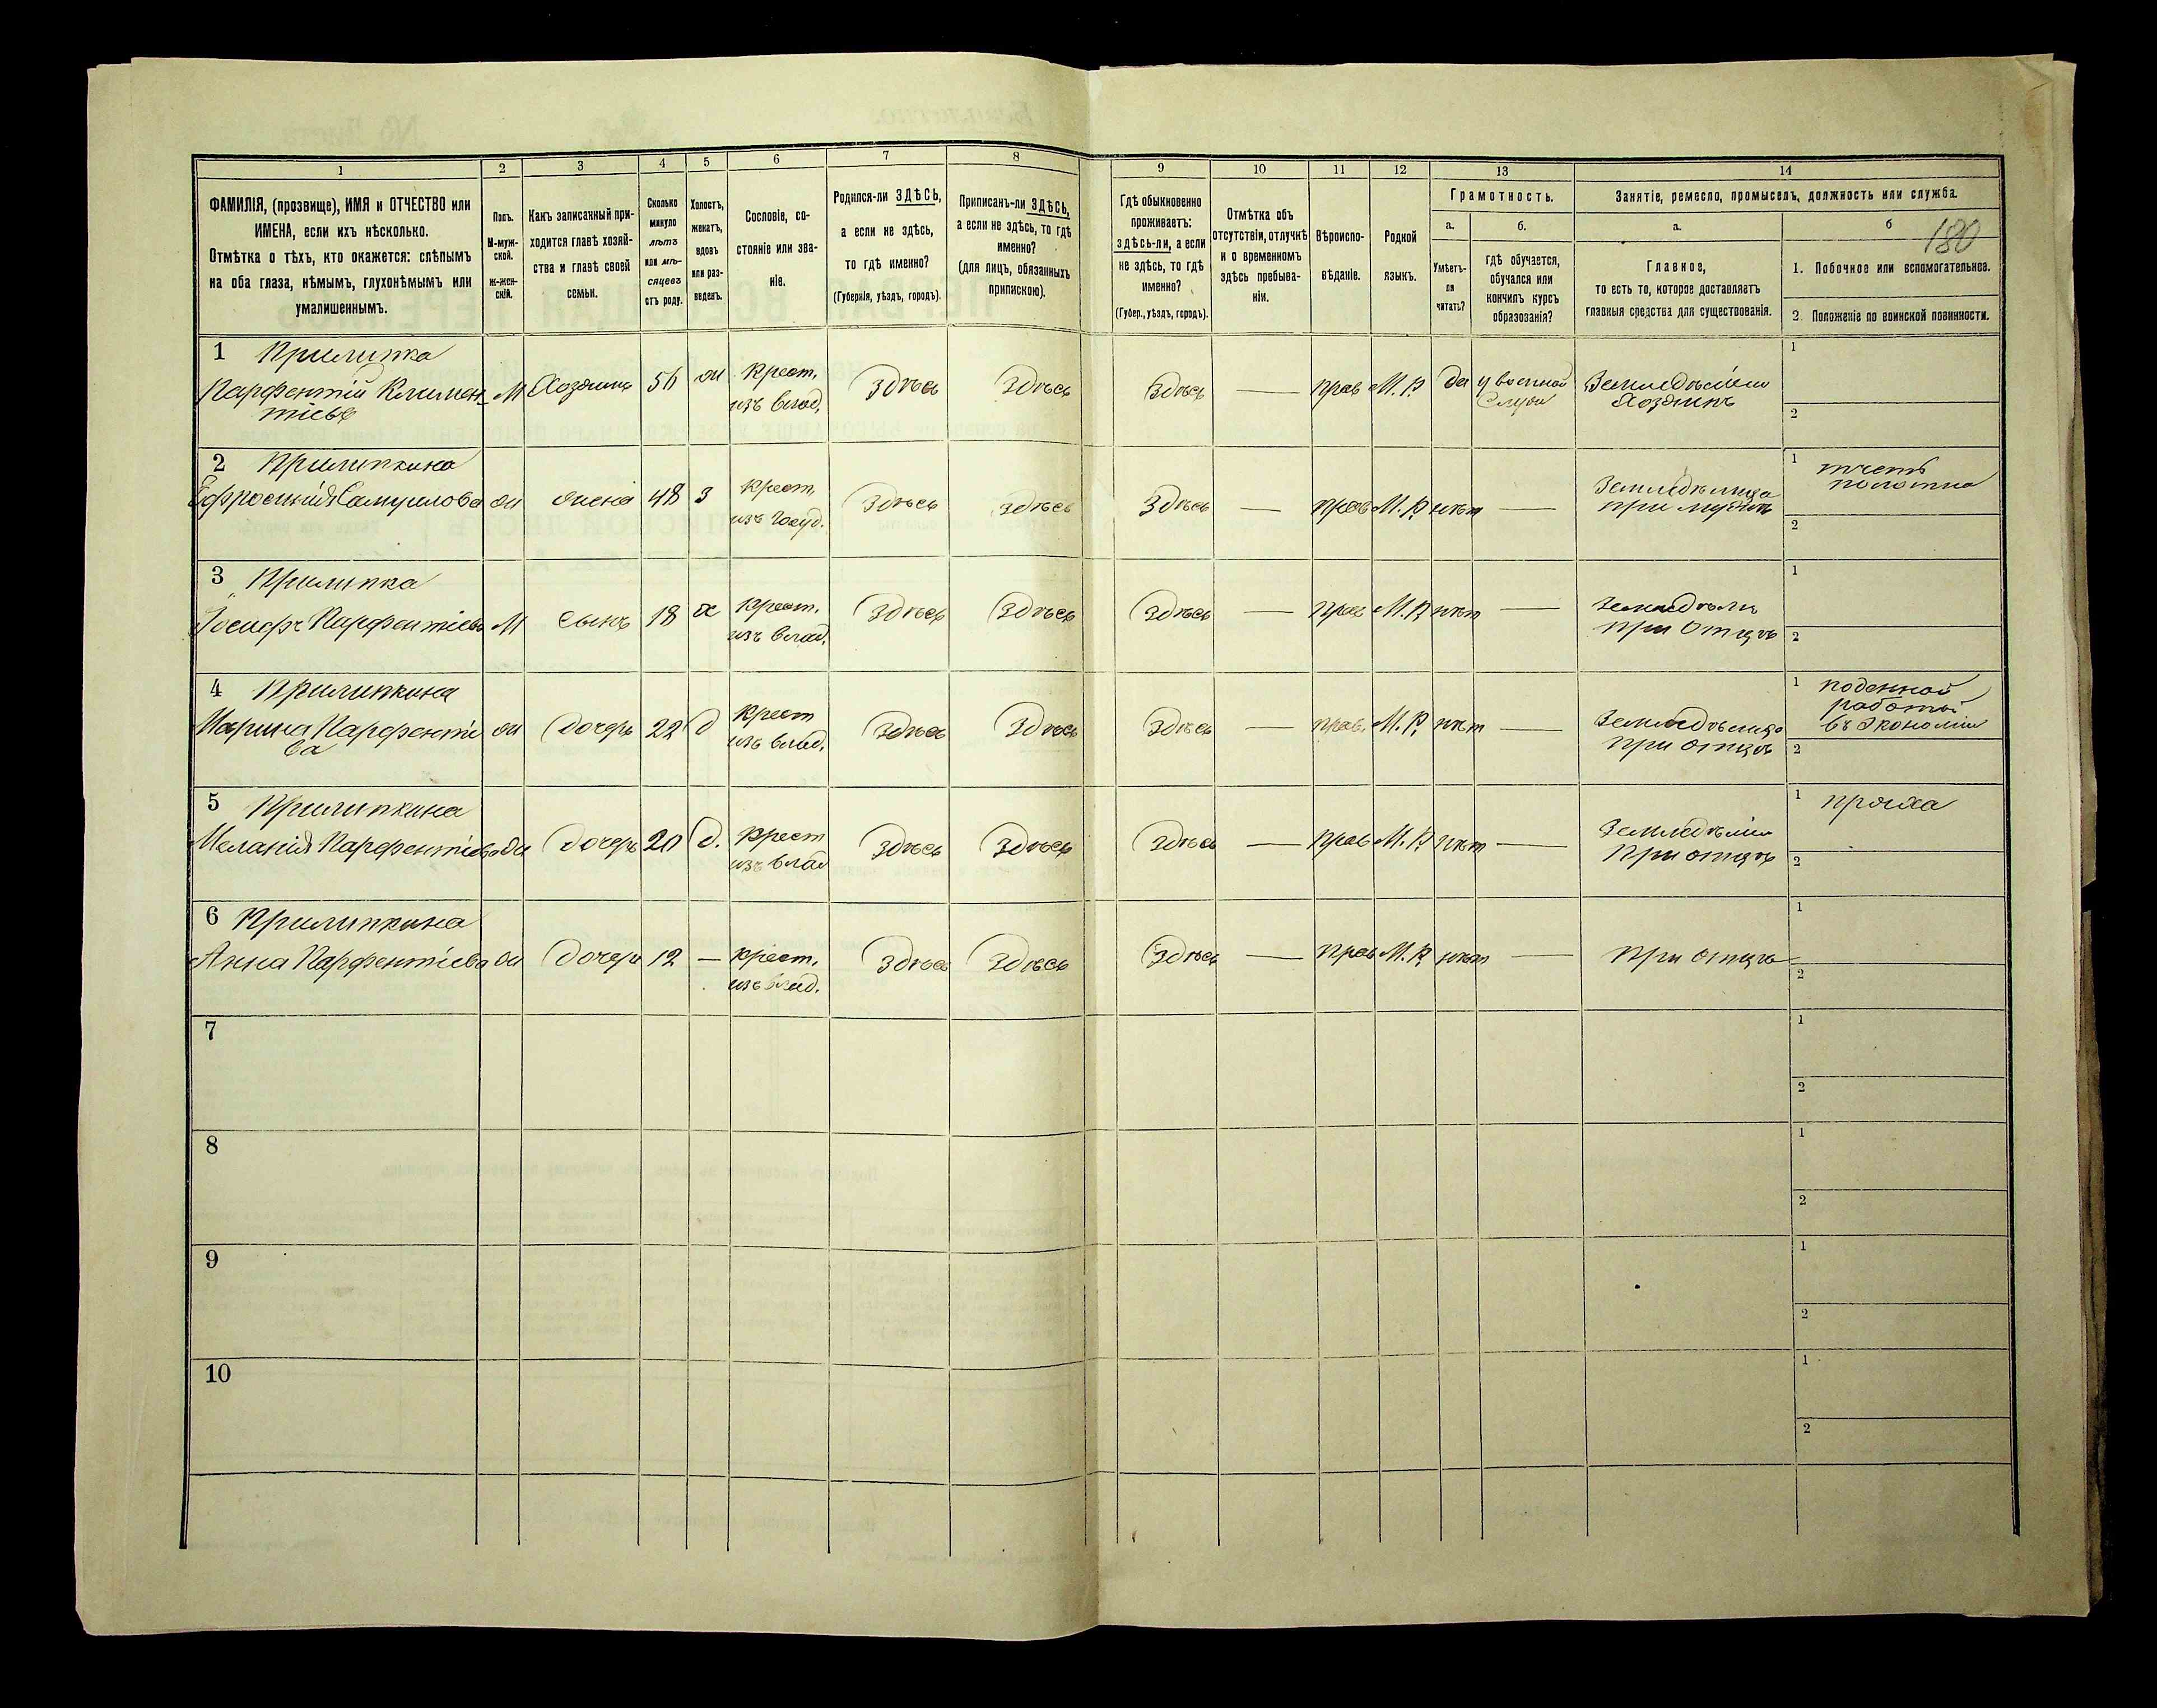 1 2 3 4 5 6 7 8 9 10 11 12 13 14
ФАМИЛІЯ, (прозвище), ИМЯ и ОТЧЕСТВО или
ИМЕНА, если ихъ нѣсколько.
Отмѣтка о тѣхъ, кто окажется: слѣпымъ
на оба глаза, нѣмымъ, глухонѣмымъ или
умалишеннымъ.
Полъ.
М-муж-
ской.
Ж-жен-
скій.
Какъ записанный при-
ходится главѣ хозяй-
ства и главѣ своей
семьи.
Сколько
минуло
лѣтъ
или мѣ-
сяцевъ
отъ роду.
Холостъ,
женатъ,
вдовъ
или раз-
веденъ.
Сословіе, со-
стояніе или зва-
ніе.
Родился-ли ЗДѢСЬ,
а если не здѣсь,
то гдѣ именно?
(Губернія, уѣздъ, городъ).
Приписанъ-ли ЗДѢСЬ,
а если не здѣсь, то гдѣ
именно?
(для лицъ, обязанныхъ
припискою).
Гдѣ обыкновенно
проживаетъ:
здѣсь-ли, а если
не здѣсь, то гдѣ
именно?
(Губер., уѣздъ, городъ).
Отмѣтка объ
отсутствіи, отлучкѣ
и о временномъ
здѣсь пребыва-
ніи.
Вѣроиспо-
вѣданіе.
Родной
языкъ.
Грамотность.
а.
Умѣетъ-
ли
читать?
б.
гдѣ обучается,
обучался или
кончилъ курсъ
образованія?
Занятіе, ремесло, промыселъ, должность или служба.
а.
Главное,
то есть то, которое доставляетъ
главныя средства для существованія.
б
180
1. Побочное или вспомогательное.
2. Положеніе по воинской повинности.
1 Прилипка
Парфентій Климен-
тіевъ
М Хозяинъ 56 ж Крест.
изъ влад.
Здѣсь Здѣсь Здѣсь — прав М. Р. да
Хозяинъ
1
2
2 Прилипкина
Ефросинія Самуилова ж жена 48 з Крест.
изъ Госуд.
Здѣсь Здѣсь Здѣсь — прав М. Р. нѣт — Земледѣлица
при мужѣ
1 ткетъ
полотна
2
3 Прилипка
Іосифъ Парфентіевъ М Сынъ 18 х Крест.
изъ влад.
Здѣсь Здѣсь Здѣсь — прав М. Р. нѣт —
при Отцѣ
1
2
4 Прилипкина
Марина Парфенті
ва
ж Дочерь 22 д Крест
изъ влад.
Здѣсь Здѣсь Здѣсь — прав. М. Р. нѣт — Земледѣлица
при отцѣ
1 поденной
работой
въ Экономіи
2
5 Прилипкина
Меланія Парфентіева ж Дочерь 20 д. Крест
изъ влад
Здѣсь Здѣсь Здѣсь — прав М. Р. нѣт —
При отцѣ
1 пряха
2
6 Прилипкина
Анна Парфентіева ж Дочерь 12 — Крест.
изъ влад.
Здѣсь Здѣсь Здѣсь — прав М. Р. нѣт — При отцѣ
1
2
7
1
2
8
1
2
9
1
2
10
1
2